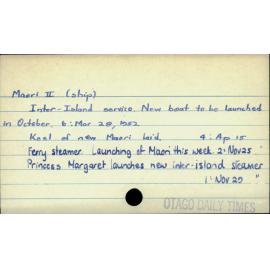 Maori II (ship)
Inter-Island service. New boat to be launched
in October. 6: Mar 28, 1952
Keel of new Maori laid. 4: Ap 15
Ferry steamer. Launching of Maori this week 2: Nov 25
Princess Margaret launches new inter-island steamer
1: Nov 29 "
OTAGO DAILY TIMES